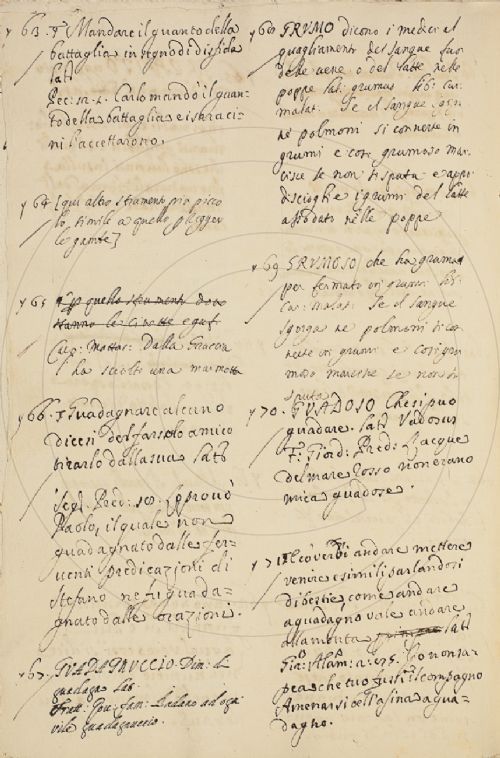 63. Mandare il quanto della
battaglia in segno di disfida
lat.
Pec: 12. 2. Carlo mandò il guan-
to della battaglia e i saraci-
ni l'accettarono.
64 [qui altro strumento più picco
lo, simile a quello p legger
le gambe]
65
quello strumento dove
stanno le
Dalla
ha sciolto una marmotta
66. Guadagnare alcuno
Dicesi del farselo amico
tirarlo dalla sua lat.
Segn: Pred: 10. Lo provò
Paolo, il quale non
guadagnato dalle fer-
venti predicazioni di
Stefano ne fu guada-
gnato dalle orazioni.
67. GUADAGNUCCIO. Dim: di
guadag. lat.
Fratt: Gov: fam: Andano ad ogni
vile guadagnuccio.
68 GRUMO dicono i medici al
quagliamento del sangue fuor
delle vene ò del latte nelle
poppe lat: grumus lib: cu:
malat: Se il sangue
nè polmoni si converte in
grumi e così grumoso mar-
cisce se non si sputa e app:
discioglie i grumi del latte
assodati nelle poppe
69 GRUMOSO che ha grumi
per fermato in grumi: lib:
cu: malat: Se il sangue
sgorga ne polmoni si con
verte in grumi e così gru
moso marcisce se non si
sputa
70. GUADOSO Che si può
guadare. lat. Vadosus
F: Giord: Pred: L'acque
del mare Rosso non erano
mica guadose.
71 Il co' verbi andare mettere
venire e simili parlandosi
di bestie, come andare
a guadagno vale andare
alla monta lat.
Alam: 2. 275. Tu non sa-
pea che tu fusti il compagno
A menarsi cell'asina a gua-
dagno.